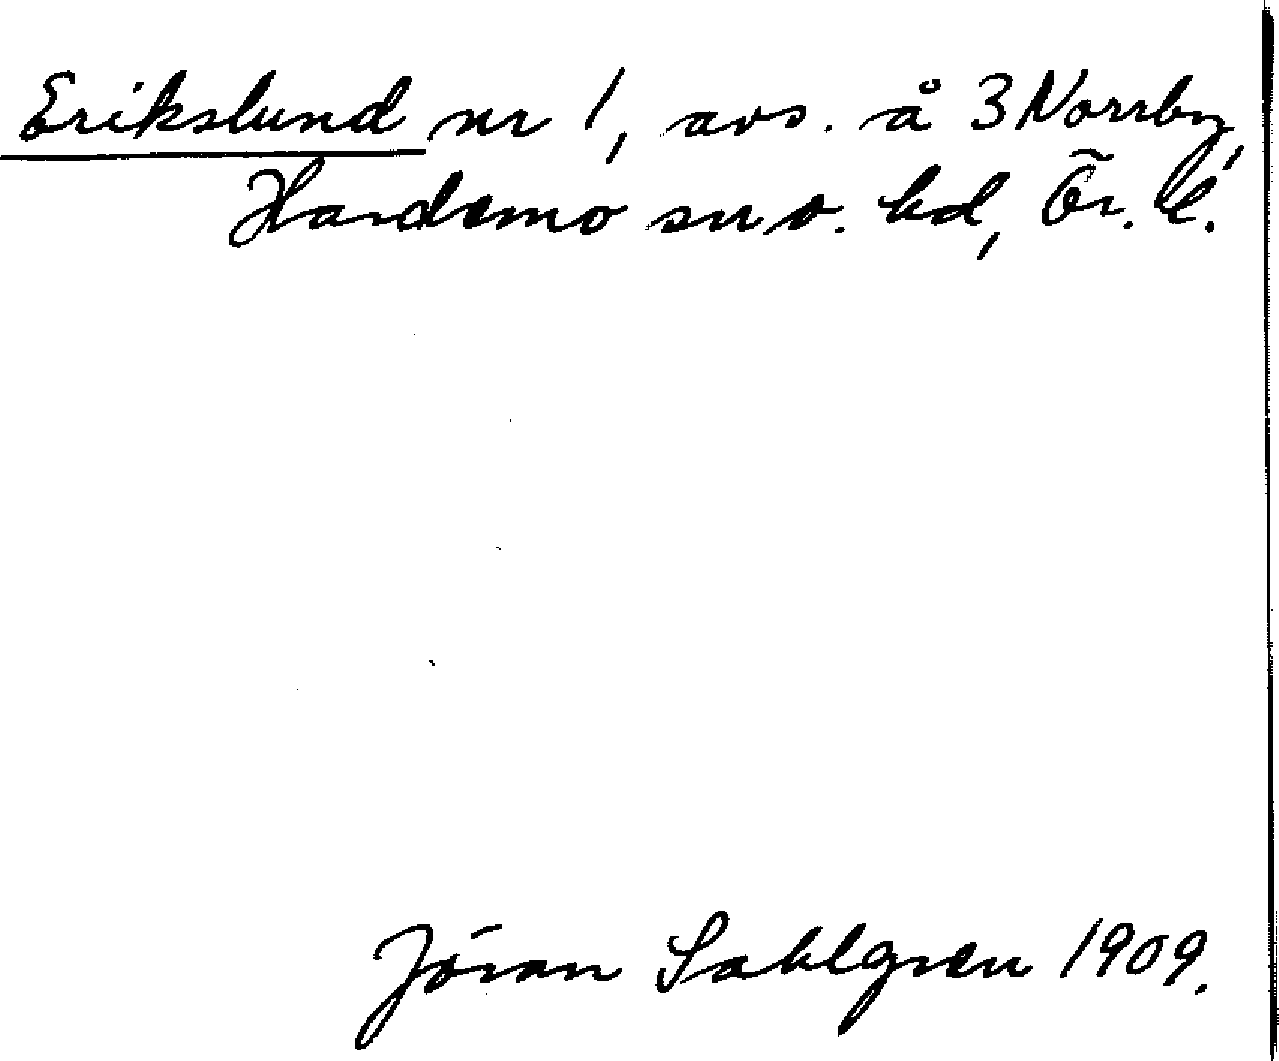 Erikslund nr 1, avs. å 3 Norrby,
Hardemo sn o. hd, Ör. l.
Jöran Sahlgren 1909.